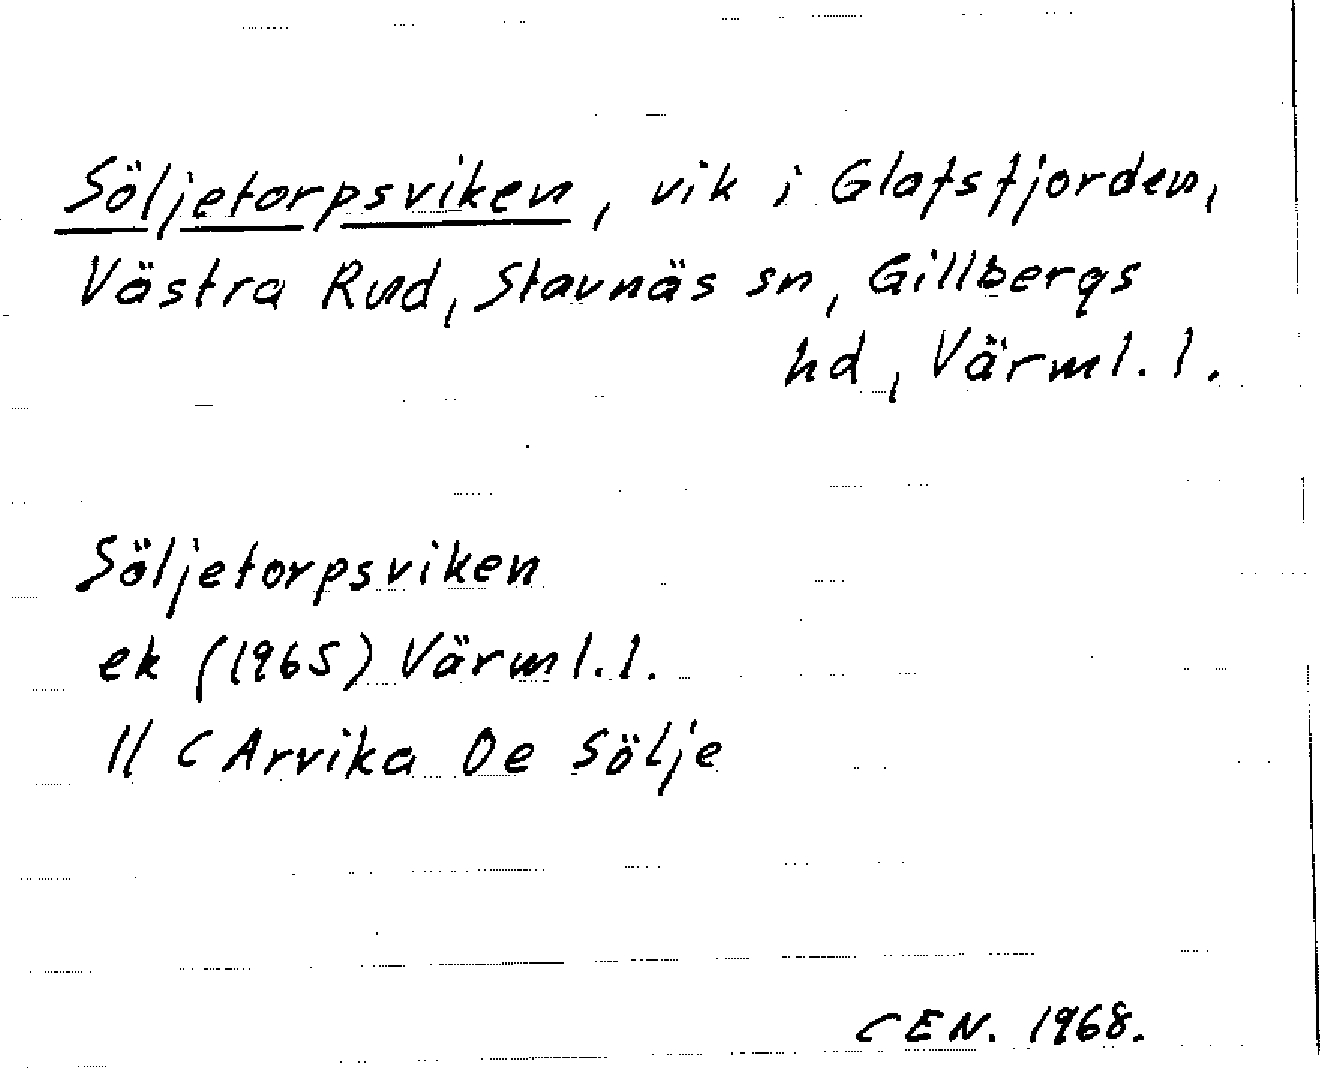 Söljetorpsviken, vik i Glafsfjorden,
Västra Rud, Stavnäs sn, Gillbergs
hd, Värml. l.
Söljetorpsviken
ek (1965) Värml. l.
11 C Arvika 0e Sölje
CEN. 1968.